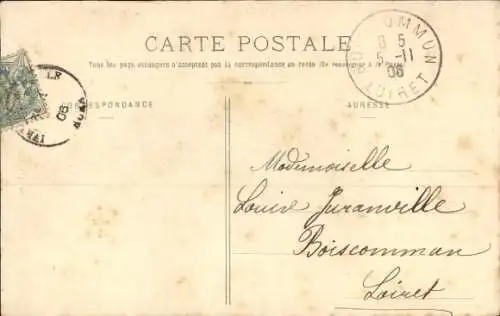 CARTE POSTALE
Tous les pays étrangers n'acceptent pas la correspondance au recto (Se renseigner à la
CORRESPONDANCE
ADRESSE
COMMUN
8 5
5 -11
06
LOIRET
06
NORD
Mademoiselle
Louise Juranville
Boiscommun
Loiret